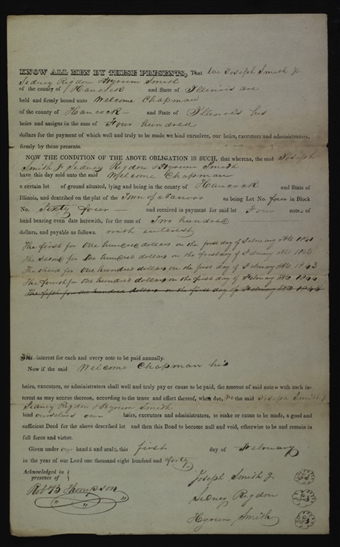 KNOW ALL MEN BY THESE PRESENTS, That we Joseph Smith Jr
Sidney Rigdon & Hyrum Smith
of the county of Hancock and State of Illinois are
held and firmly bound unto Welcome Chapman
of the county of Hancock and State of Illinois his
heirs and assigns in the sum of hundred
dollars for the payment of which well and truly to be made we bind ourselves, our heirs, executors and administrators,
firmly by these presents.
NOW THE CONDITION OF THE ABOVE OBLIGATION IS SUCH, that whereas, the said Joseph
Smith Jr Sidney Rigdon & Hyrum Smith
have this day sold unto the said Welcome Chapman
a certain lot of ground situated, lying and being in the county of Hancock and State of
Illinois, and described on the plat of the Town of Nauvoo as being Lot No. four in Block
No. Sixty four and received in payment for said lot four notes of
hand bearing even date herewith, for the sum of Two hundred
dollars, and payable as follows with interest
The first for One hundred dollars on the first day of February AD. 1841
The Second for One hundred dollars on the first day of February AD. 1842
The third for One hundred dollars on the first day of February AD. 1843
The fourth for One hundred dollars on the first day of February AD. 1844
The fifth for One hundred dollars on the first day of February AD.
The interest for each and every note to be paid annually.
Now if the said Welcome Chapman his
heirs, executors, or administrators shall well and truly pay or cause to be paid, the amount of said notes with such in-
terest as may accrue thereon, according to the tenor and effect thereof, when due, the said Joseph Smith Jr
Sidney Rigdon & Hyrum Smith
bind ourselves our heirs, executors and administrators, to make or cause to be made, a good and
sufficient Deed for the above described lot and then this Bond to become null and void, otherwise to be and remain in
full force and virtue.
Given under our hands and seals, this first day of February
in the year of our Lord one thousand eight hundred and forty
Acknowledged in
presence of
Robt B Thompson
Joseph Smith Jr.
Sidney Rigdon
Hyrum Smith